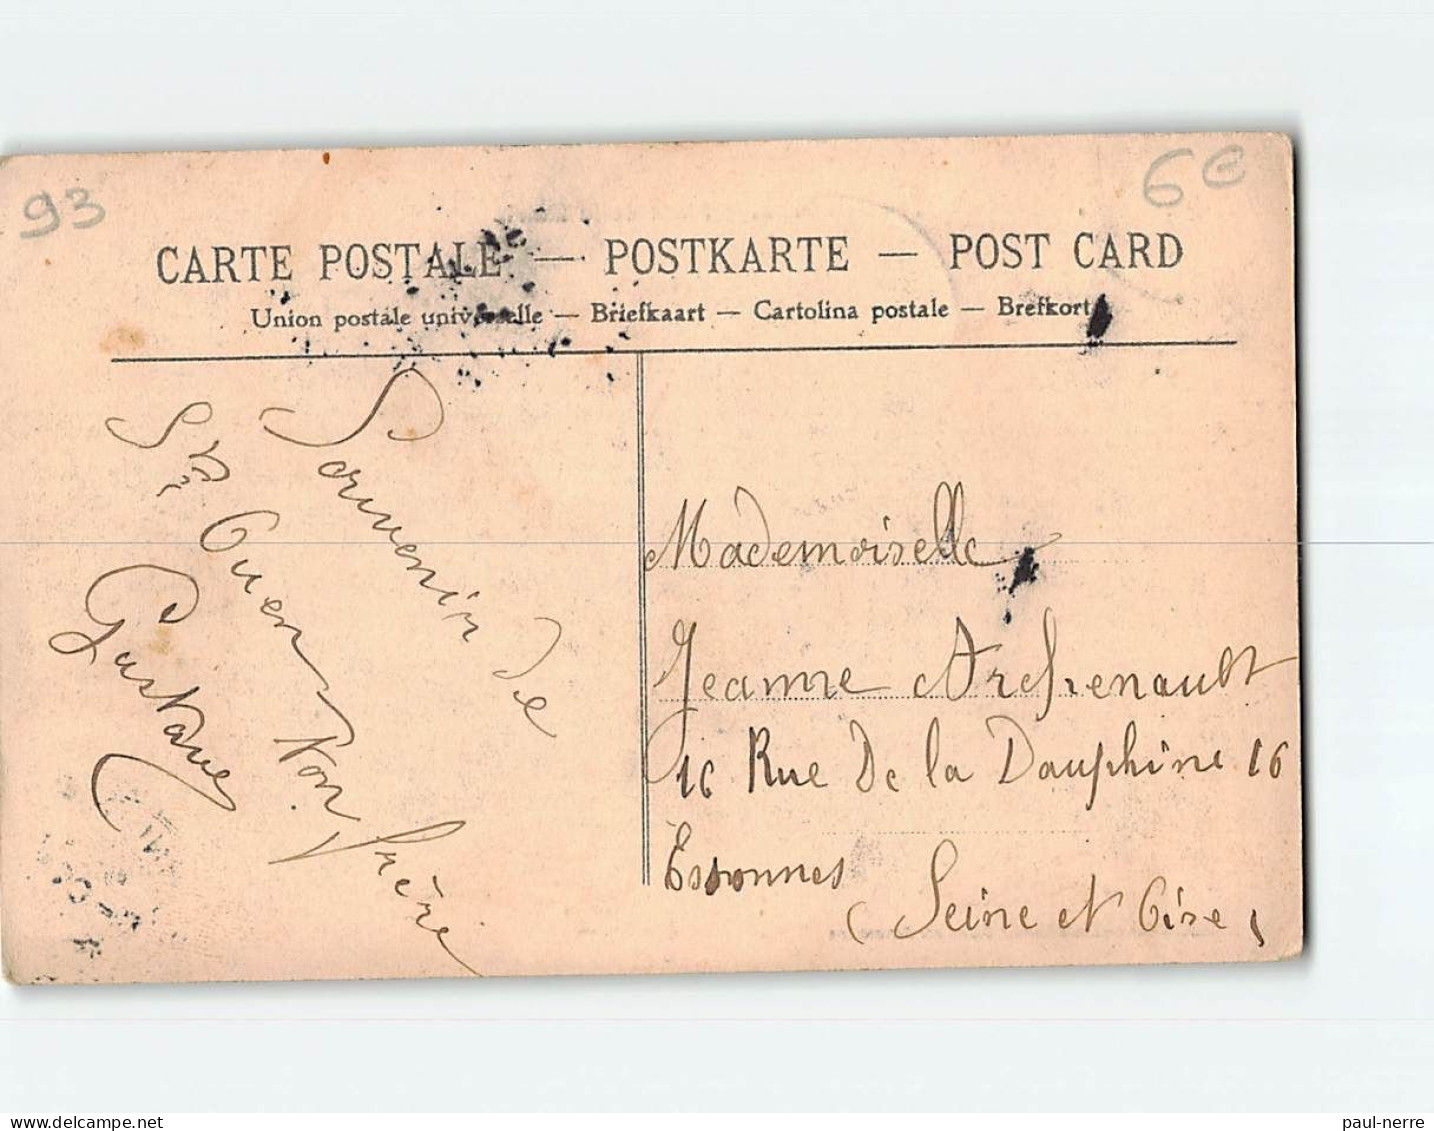 93
6€
CARTE POSTALE — POSTKARTE — POST CARD
Union postale universelle — Briefkaart — Cartolina postale — Brefkort
Souvenir de
St Ouen Ton frère
Gustave
Mademoiselle
Jeanne Archenault
16 Rue De la Dauphine 16
Essonnes
(Seine et Oise)
paul-nerre